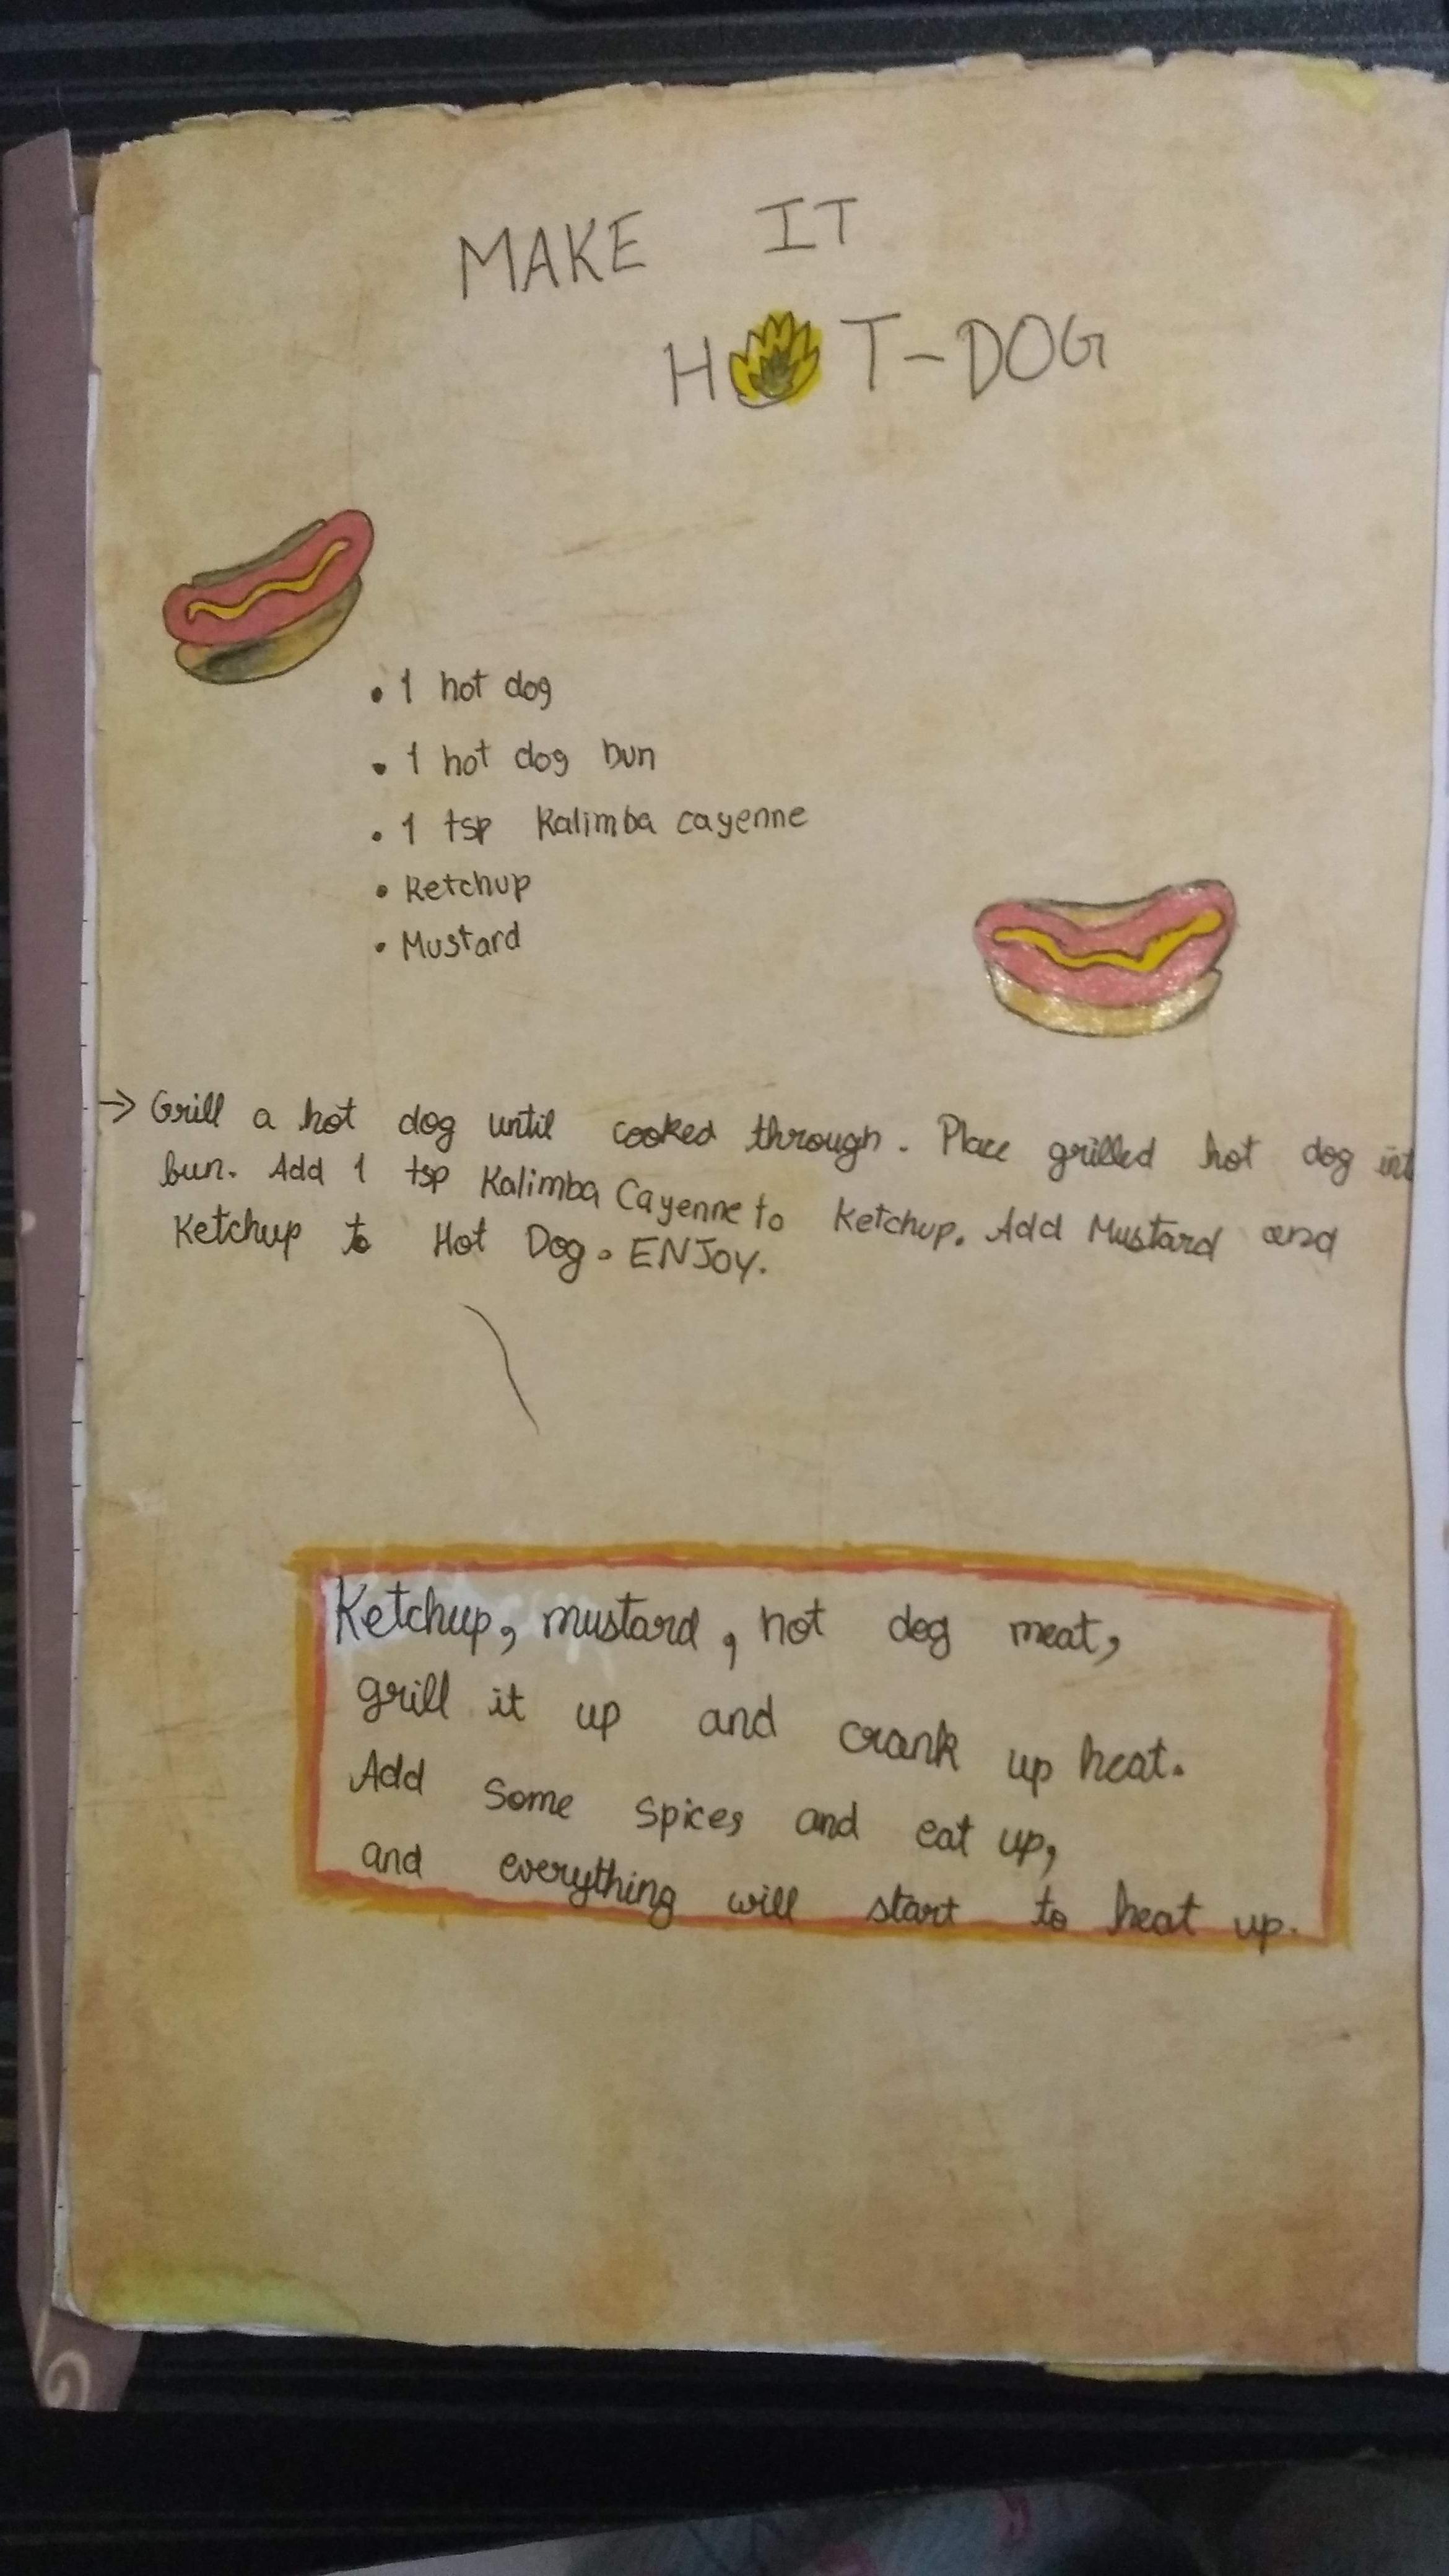 MAKE IT
HOT-DOG
• 1 hot dog
• 1 hot dog bun
• 1 tsp Kalimba cayenne
• Ketchup
• Mustard
→ Grill a hot dog until cooked through. Place grilled hot dog int
bun. Add 1 tsp Kalimba Cayenne to Ketchup. Add Mustard and
Ketchup to Hot Dog. ENJOY.
Ketchup, mustard, hot dog meat,
grill it up and crank up heat.
Add some spices and eat up,
and everything will start to heat up.